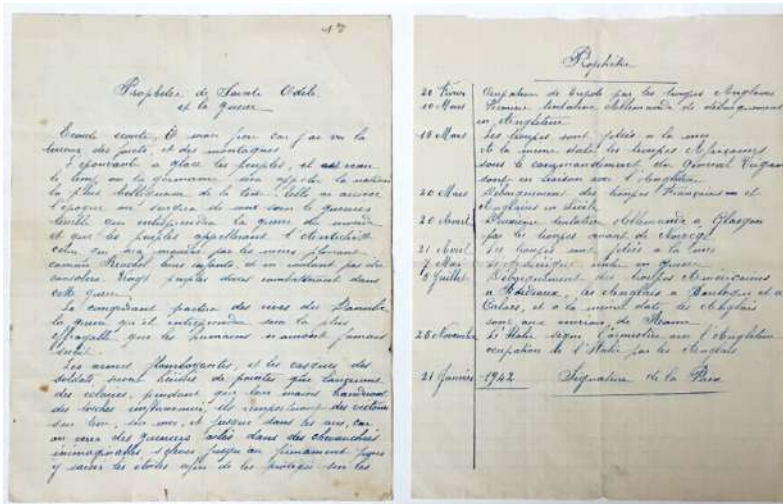 17
Prophétie de Sainte Odile
et la guerre
Ecoute écoute, O mon frère car j'ai vu la
terreur des forêts, et des montagnes
L'épouvante a glacé les peuples, et est venu
le temps ou la Germanie sera appelée la nation
la plus belliqueuse de la terre. Celle arrivera
l'époque ou surgira de son sein le guerrier
terrible qui entreprendra la guerre du monde
et que les peuples appelleront l'Antéchrist
celui qui sera maudit par les mères pleurant
comme Rachel leurs enfants, et ne voulant pas être
consolées. Vingt peuples divers combattront dans
cette guerre.
Le conquérant partira des rives du Danube
la guerre qu'il entreprendra sera la plus
effroyable que les humains n'auront jamais
subit.
Les armes flamboyantes, et les casques des
soldats seront hérissés de pointes qui lanceront
des éclairs, pendant que leurs mains brandiront
des torches
ils remporteront des victoires
sur terre, sur mer, et jusque dans les airs, car
on verra des guerriers ailés dans des chevauchées
inimaginables, s'élever jusqu'au firmament pour
y saisir les étoiles afin de les projeter sur les
Prophétie
20 Février Ocupation de Tripoli par les troupes Anglaises
10 Mars Première tentative Allemande de débarquement
en Angleterre
18 Mars Les troupes sont jetées a la mer
A la même date les troupes Africaines
sous le commandement du Général Vegan
sont en liaison avec l'Angleterre
20 Mars Débarquement des troupes Françaises et
Anglaises en Sicile
20 Avril Deuxième tentative Allemande a Glasgow
par les troupes venant de Norvège
21 Avril Les troupes sont jetées a la mer
7 Mai L'Amérique entre en guerre
5 Juillet Débarquement des troupes Américaines
a Bordeaux, les Anglais a Boulogne et a
Calais, et a la même date les Anglais
sont aux environs de Rome
25 Novembre L'Italie signe l'armistice avec l'Angleterre
ocupation de l'Italie par les Anglais
21 Janvier 1942 Signature de la Paix